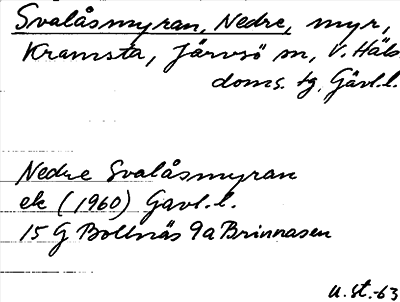 Svalåsmyran, Nedre, myr,
Kramsta, Järvsö sn, V. Häls.
doms. tg. Gävl.l.
Nedre Svalåsmyran
ek (1960) Gavl.l.
15 G Bollnäs 9a Brinnasen
u.st.-63